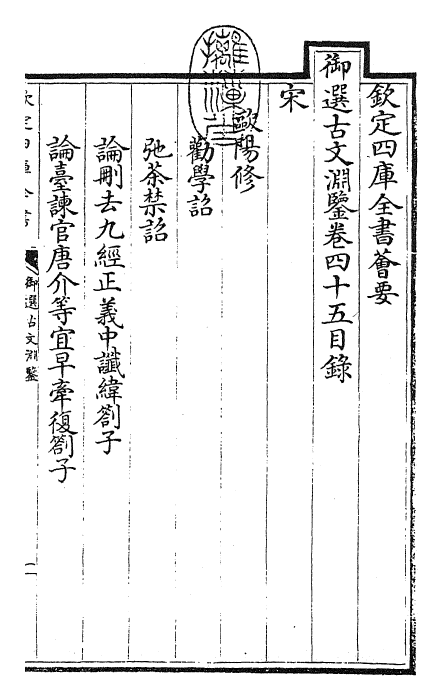 欽定四庫全書薈要
御選古文淵鑒卷四十五目錄
宋
歐陽修
勸學詔
弛茶禁詔
論刪去九經正義中讖緯劄子
論臺諫官唐介等宜早牽復劄子
欽定四庫全書
御選古文淵鑒
一